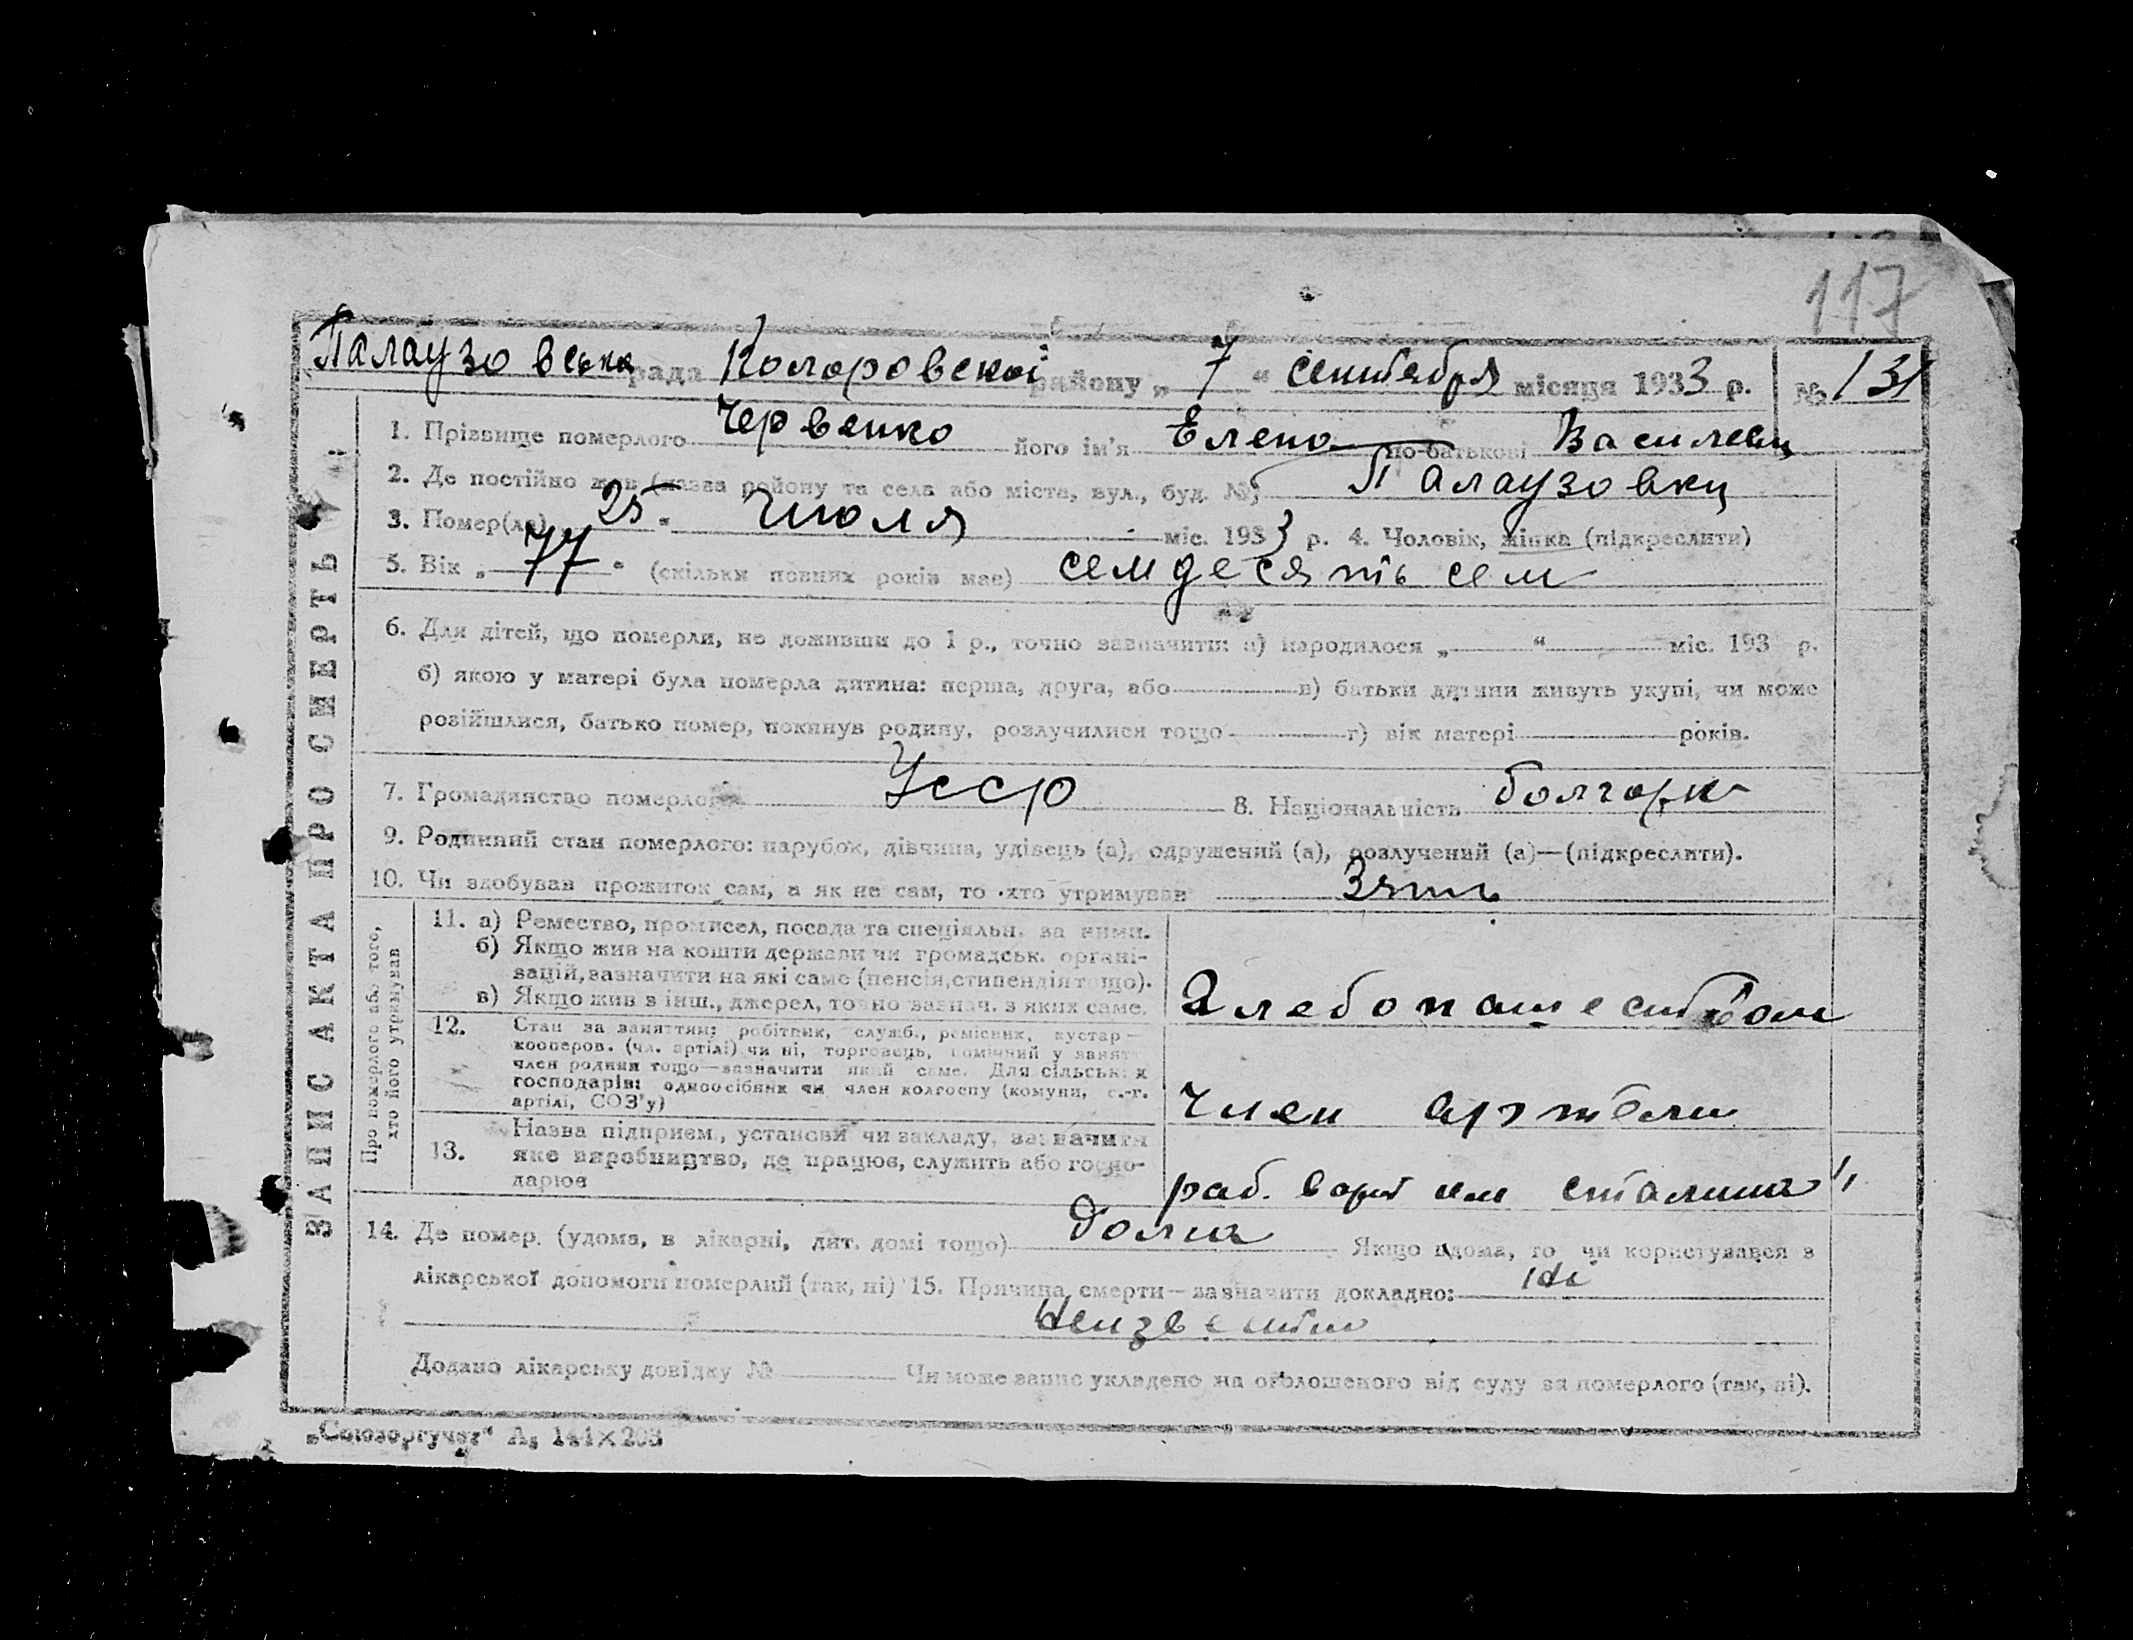 117
Палаузовська рада Коларовскої району „ 7 “ сентебря місяця 1933 р. № 131
1. Прізвище померлого Червенко його ім'я Елена по-батькові Василевц
2. Де постійно жив (назва району та села або міста, вул., буд. №) Палаузовкц
3. Помер(ла) 25 “ Июля міс. 1933 р. 4. Чоловік, жінка (підкреслити)
5. Вік „ 77 “ (скільки повних років має) семдесять сем
6. Для дітей, що померли, не доживши до 1 р., точно зазначити: а) народилося „ “ міс. 193 р.
б) якою у матері була померла дитина: перша, друга, або в) батьки дитини живуть укупі, чи може
розійшлися, батько помер, покинув родину, розлучилися тощо г) вік матері років.
7. Громадянство померлого Усср 8. Національність болгарк
9. Родинний стан померлого: парубок, дівчина, удівець (а), одружений (а), розлучений (а)—(підкреслити).
10. Чи здобував прожиток сам, а як не сам, то хто утримував Зять
ЗАПИС АКТА ПРО СМЕРТЬ
Про померлого або того,
хто його утримував
11. а) Ремество, промисел, посада та спеціяльн. за ними.
б) Якщо жив на кошти держави чи громадськ. органі-
зацій, зазначити на які саме (пенсія, стипендія тощо).
в) Якщо жив з інш., джерел, точно зазнач. з яких саме.
Хлебопашеством
12. Стан за заняттям: робітник, служб., ремісник, кустар—
кооперов. (чл. артілі) чи ні, торговець, помічний у занят.
член родини тощо—зазначити який саме. Для сільських
господарів: одноосібник чи член колгоспу (комуни, с.-г.
артілі, СОЗ'у)
Член артели
13. Назва підприєм., установи чи закладу, зазначити
яке виробництво, де працює, служить або госпо-
дарює
раб. в арт им Сталина "
14. Де помер. (удома, в лікарні, дит. домі тощо) дома Якщо вдома, то чи користувався з
лікарської допомоги померлий (так, ні) 15. Причина смерти—зазначити докладно: Ні
Неизвестно
Додано лікарську довідку № Чи може запис укладено на оголошеного від суду за померлого (так, ні).
„Союзоргучет“ А5 144×203